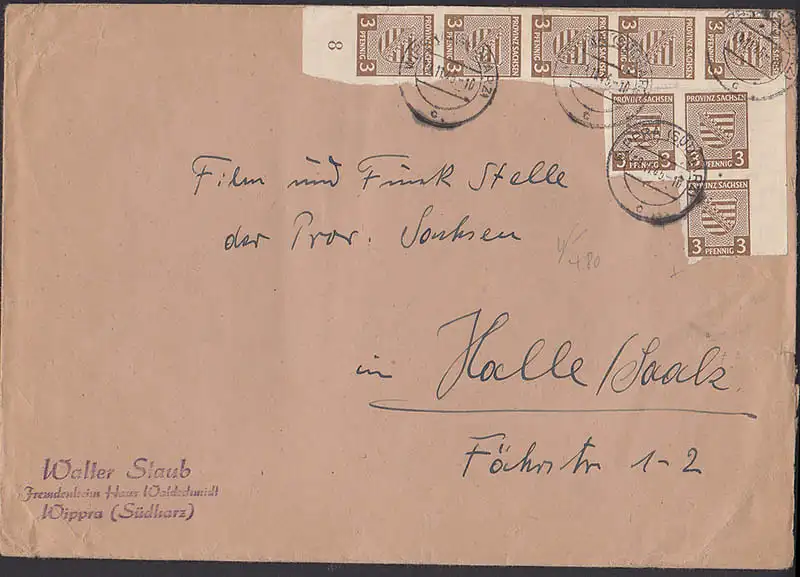 8
3 PFENNIG PROVINZ SACHSEN 3
3 PFENNIG PROVINZ SACHSEN 3
3 PFENNIG PROVINZ SACHSEN 3
3 PFENNIG PROVINZ SACHSEN 3
3 PFENNIG PROVINZ SACHSEN 3
PROVINZ SACHSEN
3 PFENNIG 3
PROVINZ SACHSEN
3 PFENNIG 3
PROVINZ SACHSEN
3 PFENNIG 3
WIPPRA (SÜDHARZ)
c
Film und Funk Stelle
der Prov. Sachsen
4.80
in Halle/Saale
Fährstr 1-2
Walter Staub
Fremdenheim Haus Waldschmidt
Wippra (Südharz)